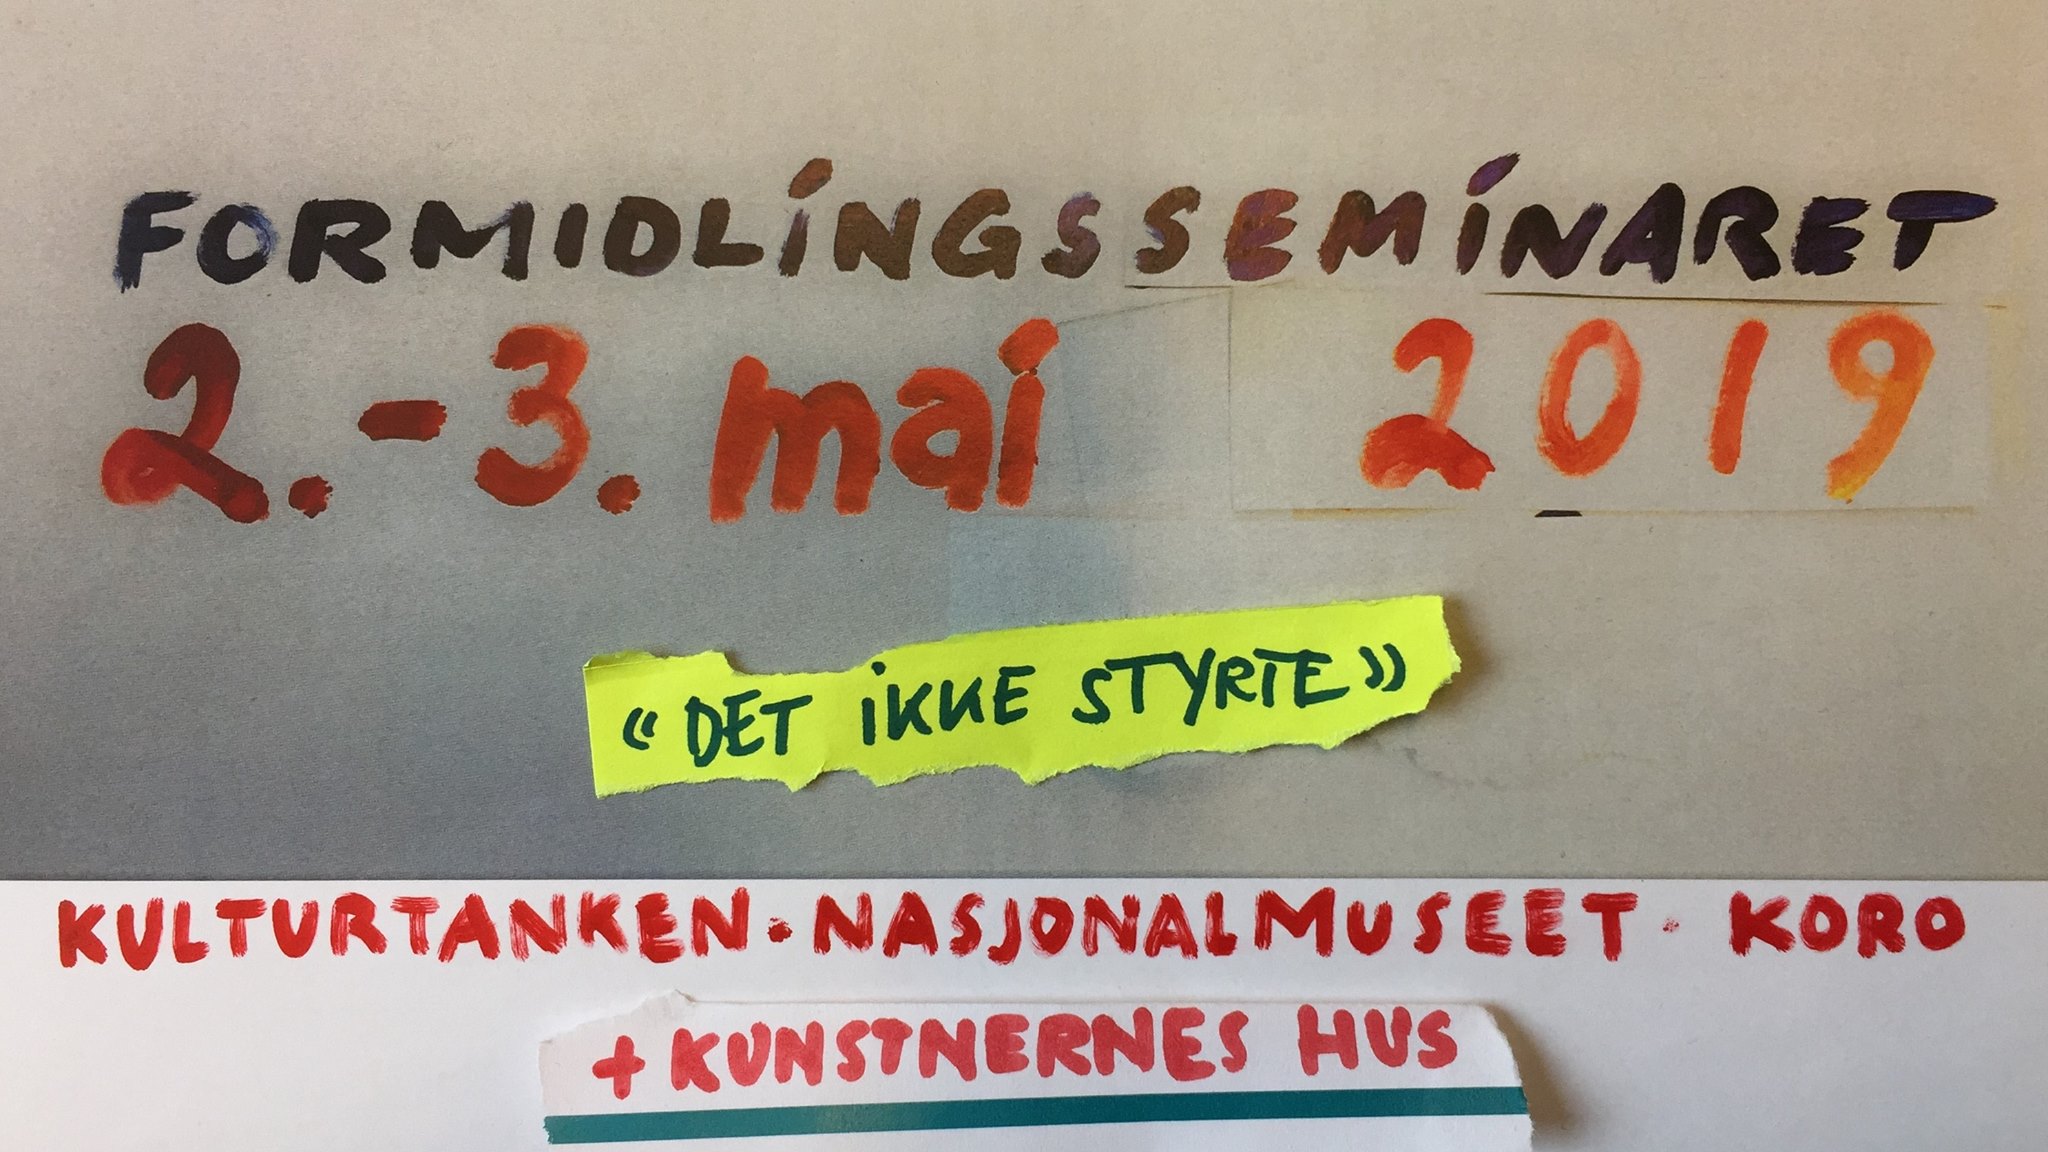 FORMIDLINGSSEMINARET
2.-3. mai 2019
«DET iKKE STYRTE»
KULTURTANKEN·NASJONALMUSEET· KORO
+KUNSTNERNES HUS